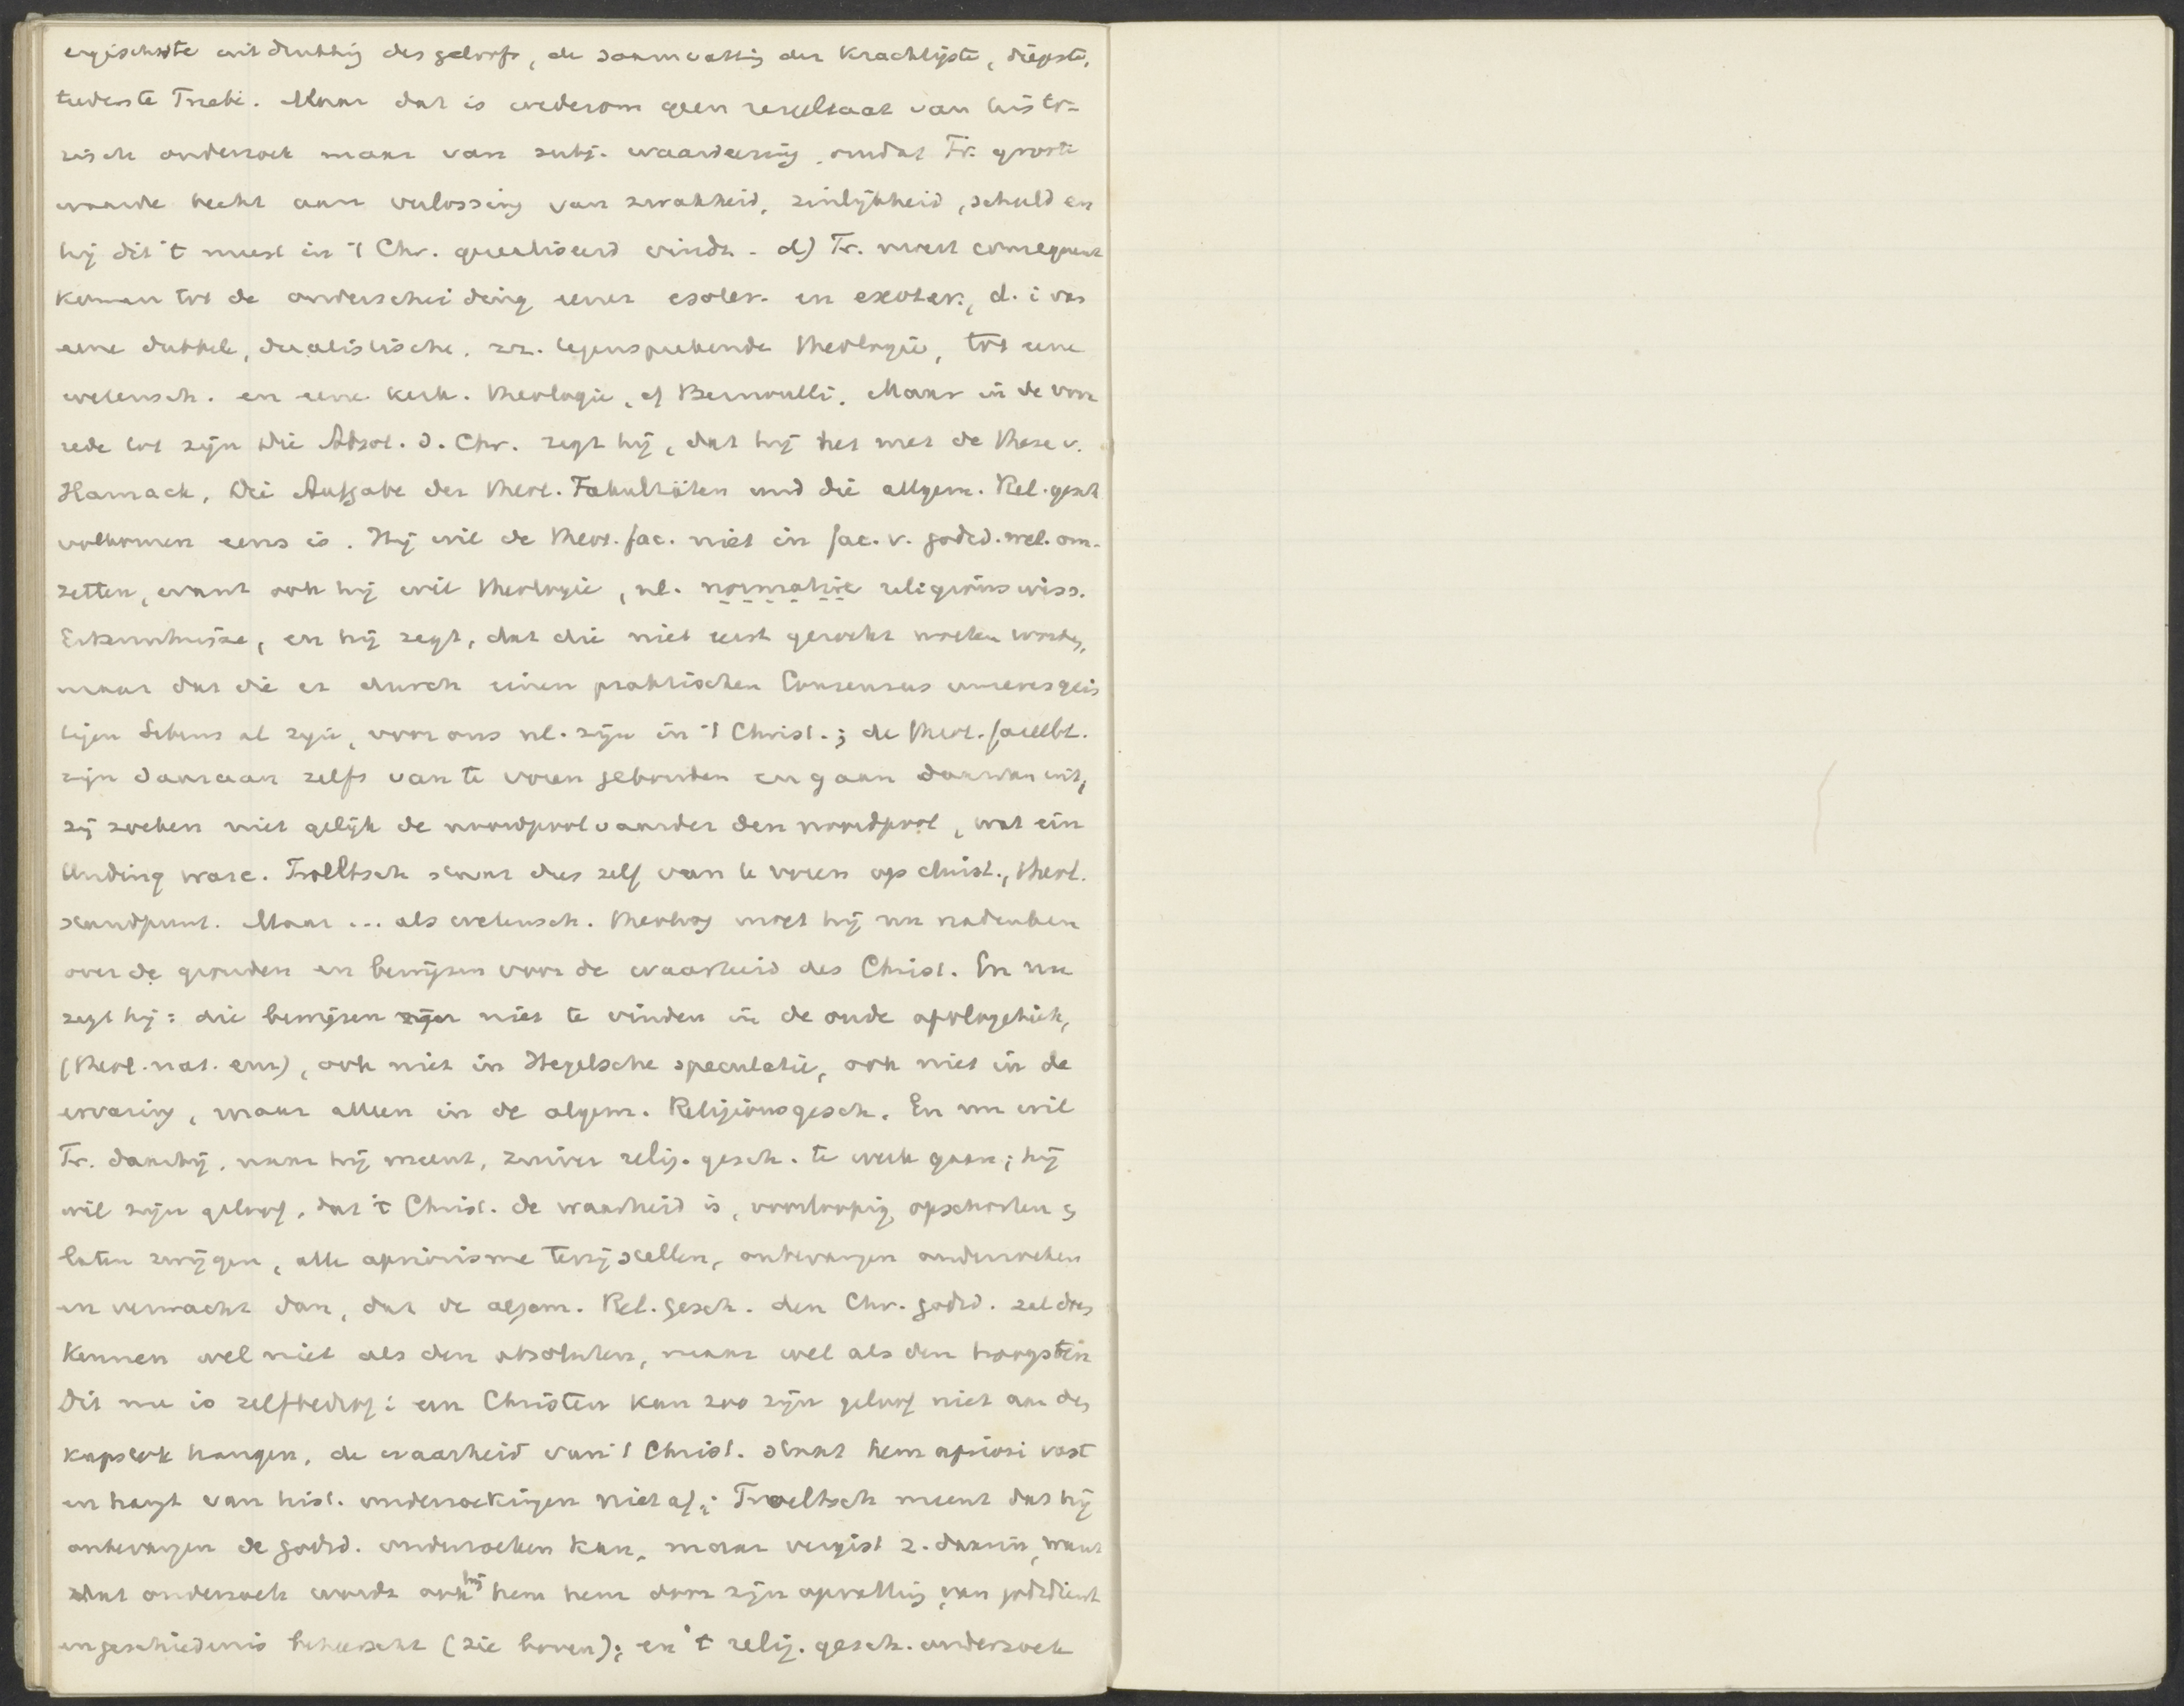 ergischste uitdrukking des geloofs, de saamvatting der krachtigste, diepste,
tiefenste Triebe. Maar dat is wederom geen resultaat van histo-
risch onderzoek maar van subj. waardeering, omdat Tr. groote
waarde hecht aan verlossing van zwakheid, zinlijkheid, schuld en
hij dit 't meest in 't Chr. gerealiseerd vindt. d) Tr. moest consequent
komen tot de onderscheiding eener esoter. en exoter., d. i. van
eene dubbele, dualistische, zz. tegensprekende theologie, tot eene
wetensch. en eene kerk. theologie, cf Bernoulli. Maar in de voor
rede tot zijn Die Absol. d. Chr. zegt hij, dat hij het met de these v.
Harnack, Die Aufgabe der theol. Fakultäten und die allgem. Rel.gesch
volkomen eens is. Hij wil de theol. fac. niet in fac. v. godsd. wet. om-
zetten, want ook hij wil theologie, nl. normative religionswiss.
Erkenntnisse, en hij zegt, dat die niet eerst gezocht moeten worden,
maar dat die er durch einen praktischen Consensus unseres geis
tigen Lebens al zijn, voor ons nl. zijn in 't Christ.; de theol. facult.
zijn daaraan zelfs van te voren gebonden en gaan daarvan uit,
zij zoeken niet gelijk de noordpoolvaarder den noordpool, wat ein
Unding ware. Troeltsch staat dus zelf van te voren op christ., theol.
standpunt. Maar ... als wetensch. theoloog moet hij nu nadenken
over de gronden en bewijzen voor de waarheid des Christ. En nu
zegt hij: die bewijzen zijn niet te vinden in de oude apologetiek,
(theol. nat. enz), ook niet in Hegelsche speculatie, ook niet in de
ervaring, maar alleen in de algem. Religionsgesch. En nu wil
Tr. daarbij, naar hij meent, zuiver relig. gesch. te werk gaan; hij
wil zijn geloof, dat 't Christ. de waarheid is, voorloopig opschorten en
laten zwijgen, alle apriorisme terzijstellen, onbevangen onderzoeken
en verwacht dan, dat de algem. Rel. gesch. den Chr. godsd. zal doen
kennen wel niet als den absoluten, maar wel als den hoogsten
Dit nu is zelfbedrog: een Christen kan zoo zijn geloof niet aan den
kapstok hangen, de waarheid van 't Christ. staat hem apriori vast
en hangt van hist. onderzoekingen niet af; Troeltsch meent dat hij
onbevangen de godsd. onderzoeken kan, maar vergist z. daarin, want
dat onderzoek wordt ook bij hem hem door zijn opvatting van godsdienst
en geschiedenis beheerscht (zie boven); en 't relig. gesch. onderzoek